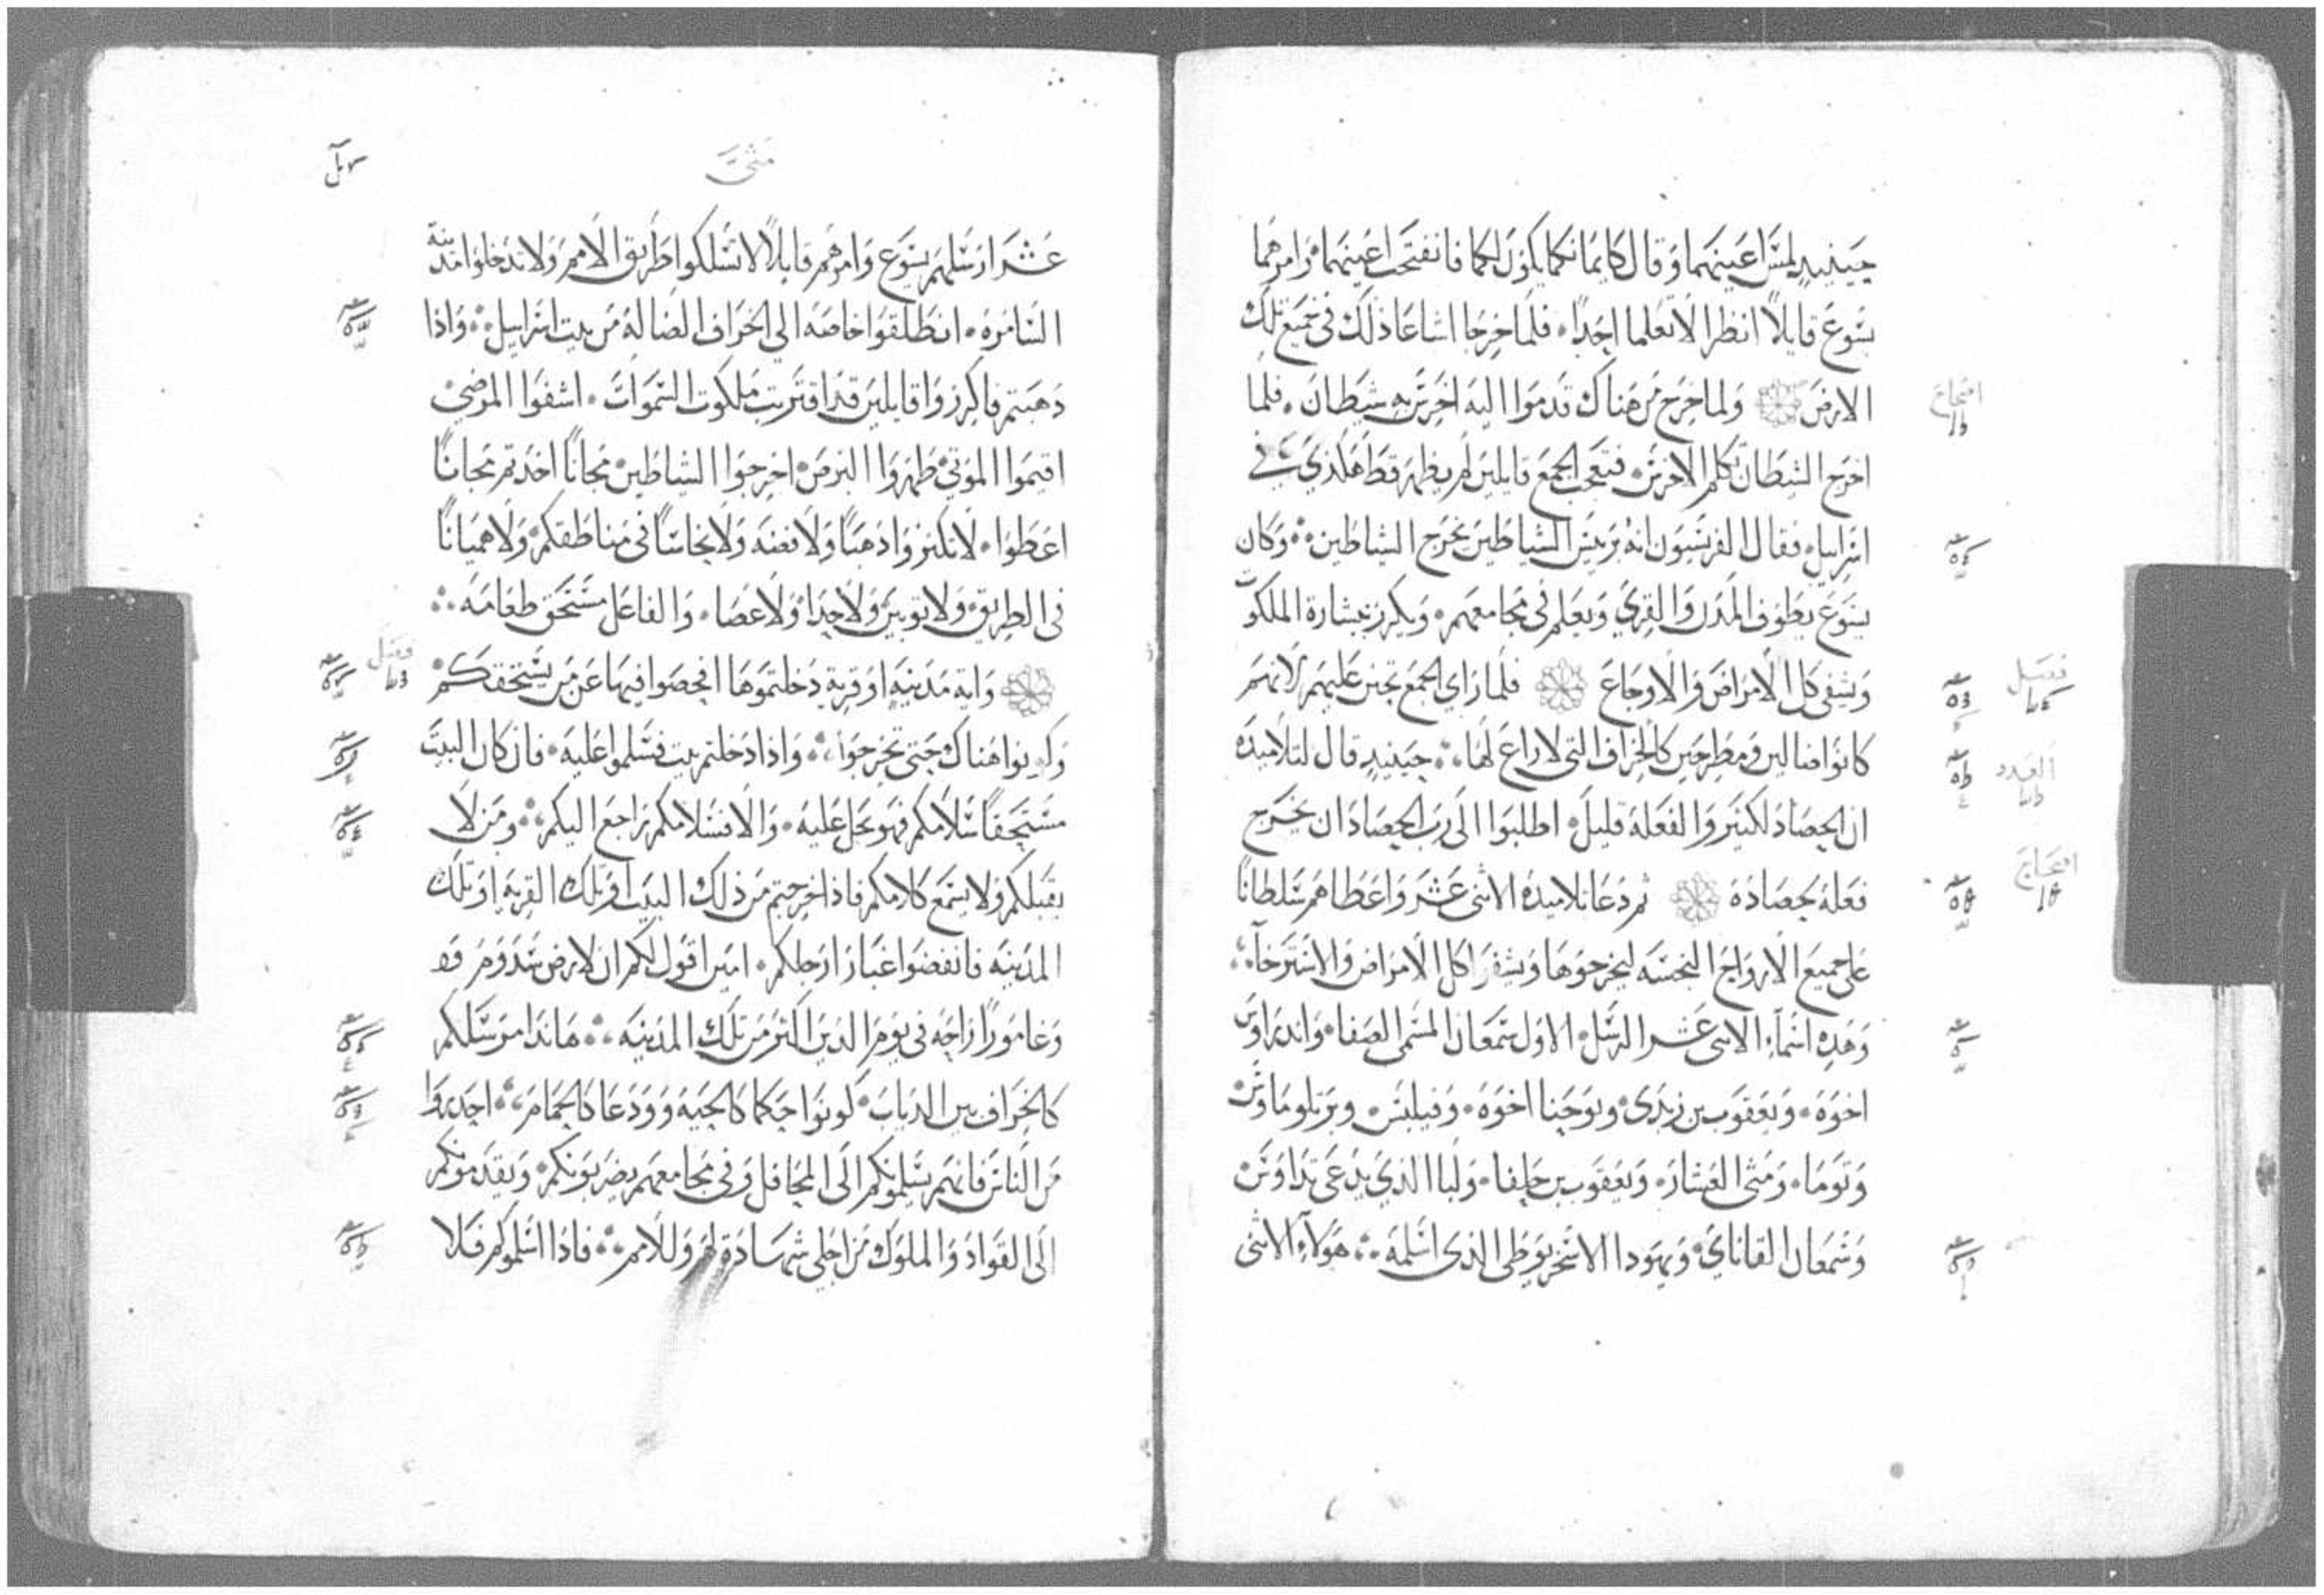 حينيذ لمس اعينهما وقال كايمانكما يكون لكما فانفتحت اعينهما وامرهما
يسوع قايلا انظرا لا تعلما احدا فلما خرجا اشاعا ذلك في جميع تلك
الارض ولما خرج من هناك قدموا اليه اخرس به شيطان فلما
اخرج الشيطان تكلم الاخرس فتعجب الجمع قايلين لم يظهر قط هكذي في
اسراييل فقال الفريسيون انه بريس الشياطين يخرج الشياطين وكان
يسوع يطوف المدن والقري ويعلم في مجامعهم ويكرز ببشارة الملكوت
ويشفي كل الامراض والاوجاع فلما راي الجمع تحنن عليهم لانهم
كانوا ضالين ومطرحين كالخراف التي لا راع لها حينيذ قال لتلاميذه
ان الحصاد لكثير والفعلة قليل اطلبوا الى رب الحصاد ان يخرج
فعلة لحصاده ثم دعا تلاميذه الاثنى عشر واعطاهم سلطانا
على جميع الارواح النجسه ليخرجوها ويشفوا كل الامراض والاسترخآ
وهذه اسمآء الاثنى عشر الرسل الاول سمعان المسمى الصفا واندراوس
اخوه ويعقوب بن زبدى ويوحنا اخوه وفيلبس وبرتلوماوس
وتوما ومتى العشار ويعقوب بن حلفا ولبا الذي يدعى تداوس
وسمعان القاناي ويهودا الاسخريوطى الذى اسلمه هولآء الاثنى
متى
عشر ارسلهم يسوع وامرهم قايلا لا تسلكوا طريق الامم ولا تدخلوا مدينة
السامره انطلقوا خاصه الى الخراف الضالة من بيت اسراييل واذا
ذهبتم فاكرزوا قايلين قد اقتربت ملكوت السموات اشفوا المرضي
اقيموا الموتي طهروا البرص اخرجوا الشياطين مجانا اخذتم مجانا
اعطوا لا تكنزوا ذهبا ولا فضه ولا نحاسا في مناطقكم ولا هميانا
في الطريق ولا ثوبين ولا حذا ولا عصا والفاعل مستحق طعامه
واية مدينه او قرية دخلتموها افحصوا فيها عن من يستحقكم
وكونوا هناك حتى تخرجوا واذا دخلتم بيت فسلموا عليه فان كان البيت
مستحقا سلامكم فهو يحل عليه والا فسلامكم راجع اليكم ومن لا
يقبلكم ولا يسمع كلامكم فاذا خرجتم من ذلك البيت او تلك القريه او تلك
المدينه فانفضوا غبار ارجلكم امين اقول لكم ان لارض سدوم
وغامورا راحه في يوم الدين اكثر من تلك المدينه هانذا مرسلكم
كالخراف بين الذياب كونوا حكما كالحيه وودعا كالحمام احذروا
من الناس فانهم يسلمونكم الى المحافل وفي مجامعهم يضربونكم ويقدمونكم
الى القواد والملوك من اجلي شهادة لهم وللامم فاذا اسلموكم فلا